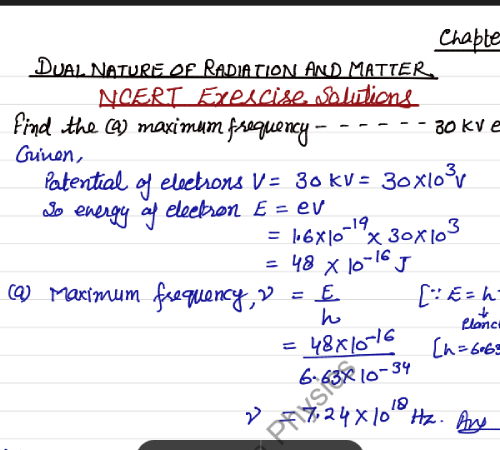 Chapte
DUAL NATURE OF RADIATION AND MATTER
NCERT Exercise Solutions
Find the (a) maximum frequency - - - - - - 30 KV e
Given,
Potential of electrons V = 30 KV = 30×10³V
So energy of electron E = eV
= 1.6×10⁻¹⁹ × 30×10³
= 48 × 10⁻¹⁶ J
(a) Maximum frequency, ν = E/h [∵ E = h
Planc
= 48×10⁻¹⁶ / 6.63×10⁻³⁴ [h = 6.63
ν = 7.24×10¹⁸ Hz. Ans
Physics